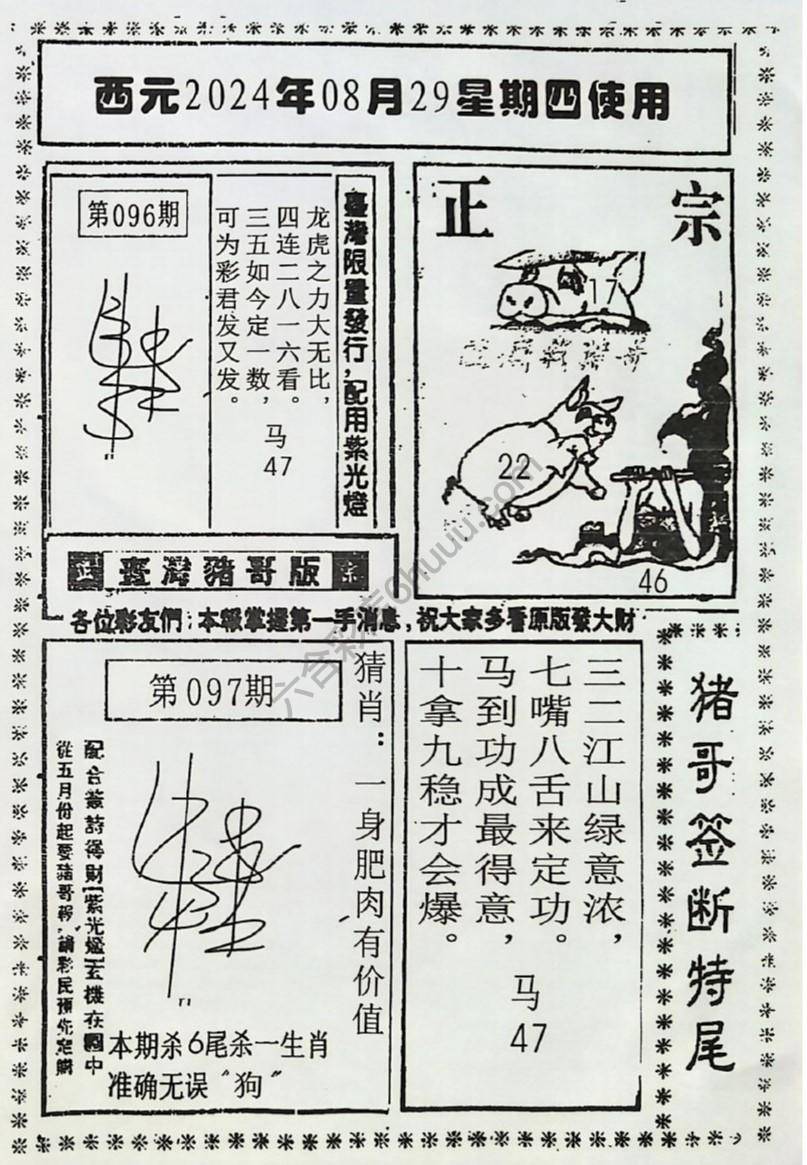 西元2024年08月29星期四使用
第096期
龙虎之力大无比，
四连二八一六看。
三五如今定一数，
可为彩君发又发。
马
47
臺灣限量發行，配用紫光燈
正宗
17
22
46
正 臺灣豬哥版 宗
各位彩友們：本報掌握第一手消息，祝大家多看原版發大財
第097期
猜肖：一身肥肉有价值
配合簽詩得財[紫光燈]玄機在圖中
從五月份起要豬哥報，請彩民預先定購
本期杀6尾杀一生肖
准确无误"狗"
三二江山绿意浓，
七嘴八舌来定功。
马到功成最得意，
十拿九稳才会爆。
马
47
猪哥签断特尾
六合彩
ohuuu.com